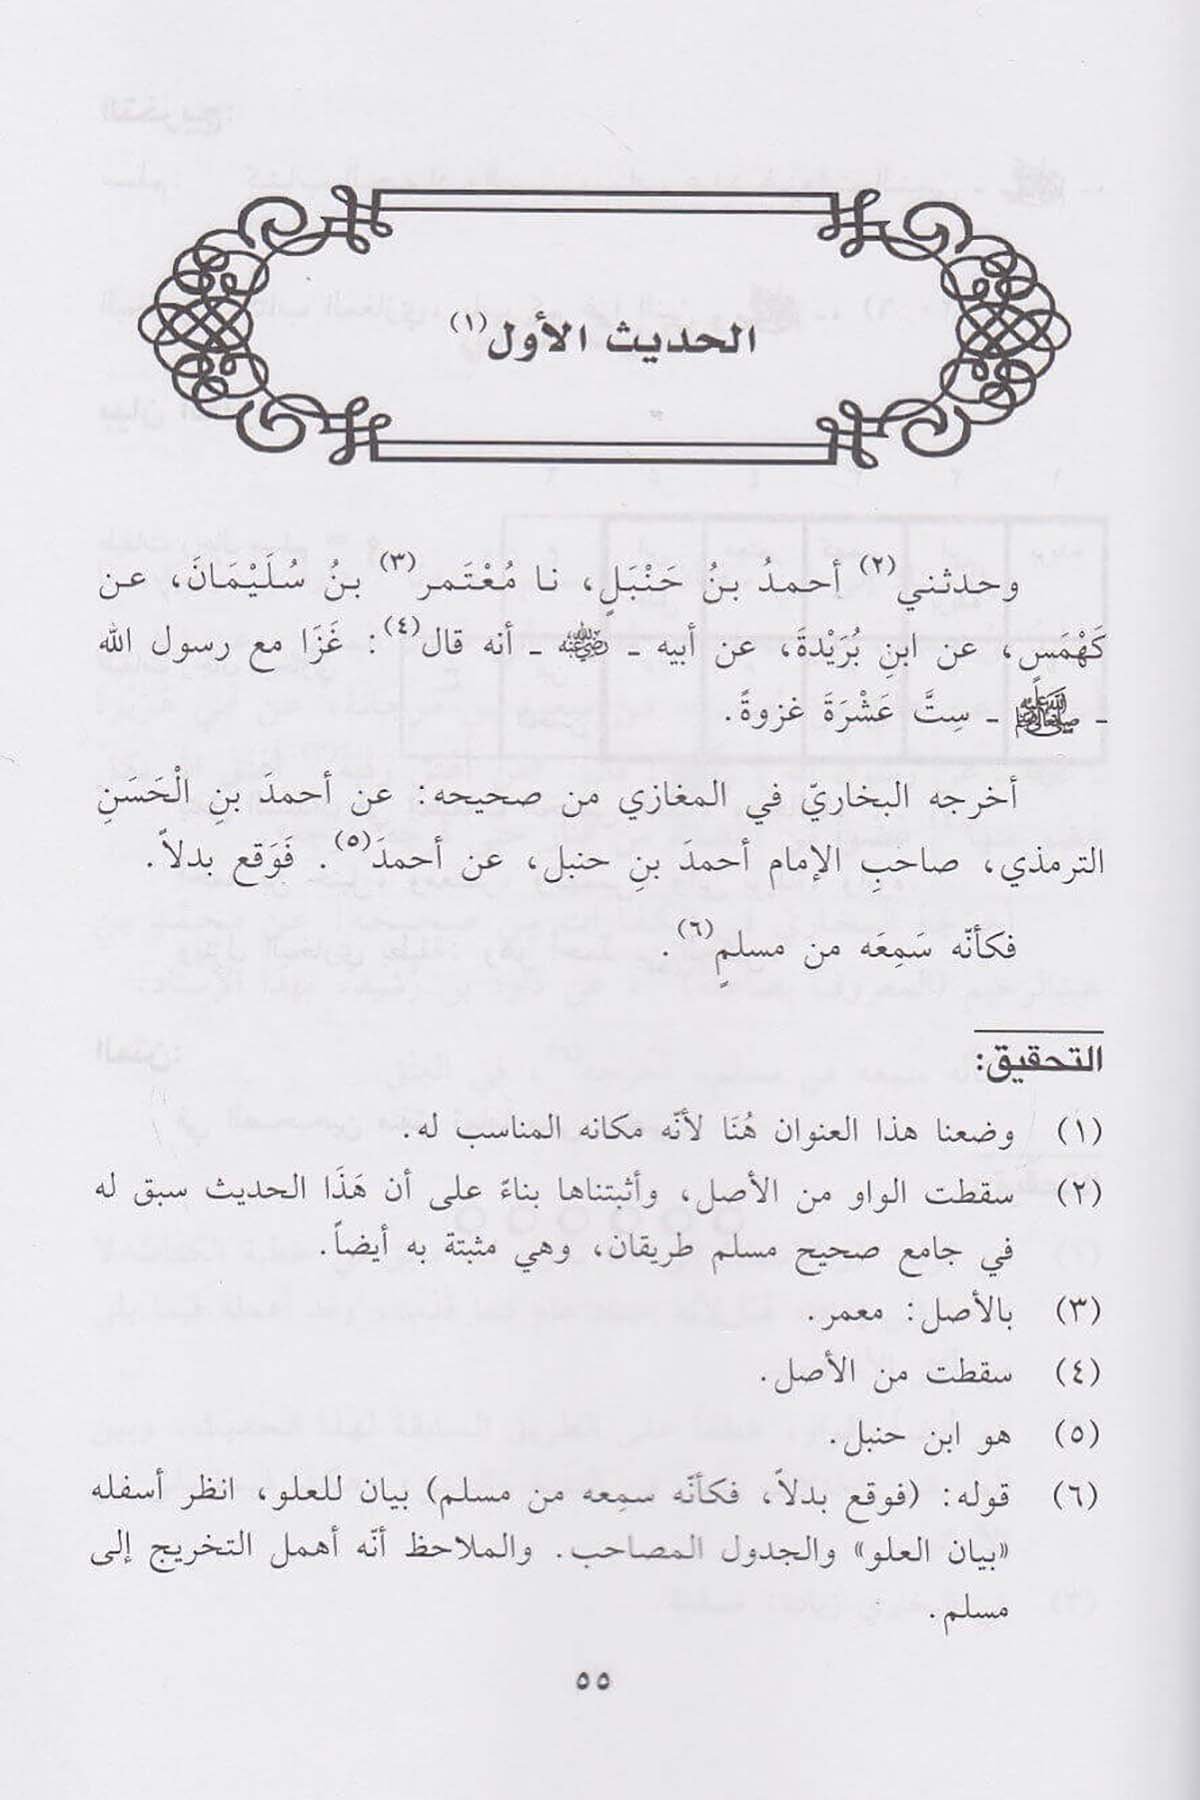 الحديث الأول(١)
وحدثني(٢) أحمدُ بنُ حَنْبَلٍ، نا مُعْتَمر(٣) بنُ سُلَيْمَانَ، عن
كَهْمَسٍ، عن ابنِ بُرَيْدةَ، عن أبيه ـ رضي الله عنه ـ أنه قال(٤): غَزَا مع رسول الله
ـ ﷺ ـ سِتَّ عَشْرَةَ غزوةً.
أخرجه البخاريّ في المغازي من صحيحه: عن أحمدَ بنِ الْحَسَنِ
الترمذي، صاحبِ الإمام أحمدَ بنِ حنبل، عن أحمدَ(٥). فَوَقع بدلاً.
فكأنّه سَمِعَه من مسلمٍ(٦).
التحقيق:
(١) وضعنا هذا العنوان هُنَا لأنّه مكانه المناسب له.
(٢) سقطت الواو من الأصل، وأثبتناها بناءً على أن هَذَا الحديث سبق له
في جامع صحيح مسلم طريقان، وهي مثبتة به أيضاً.
(٣) بالأصل: معمر.
(٤) سقطت من الأصل.
(٥) هو ابن حنبل.
(٦) قوله: (فوقع بدلاً، فكأنّه سمِعه من مسلم) بيان للعلو، انظر أسفله
«بيان العلو» والجدول المصاحب. والملاحظ أنّه أهمل التخريج إلى
مسلم.
٥٥